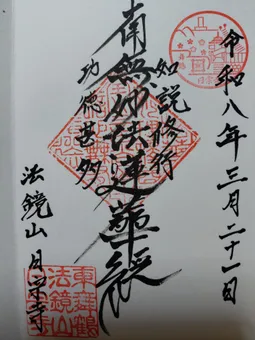 令和八年三月二十一日
如説修行
南無妙法蓮華経
功徳甚多
法鏡山 日 寺
東舞鶴
法鏡山